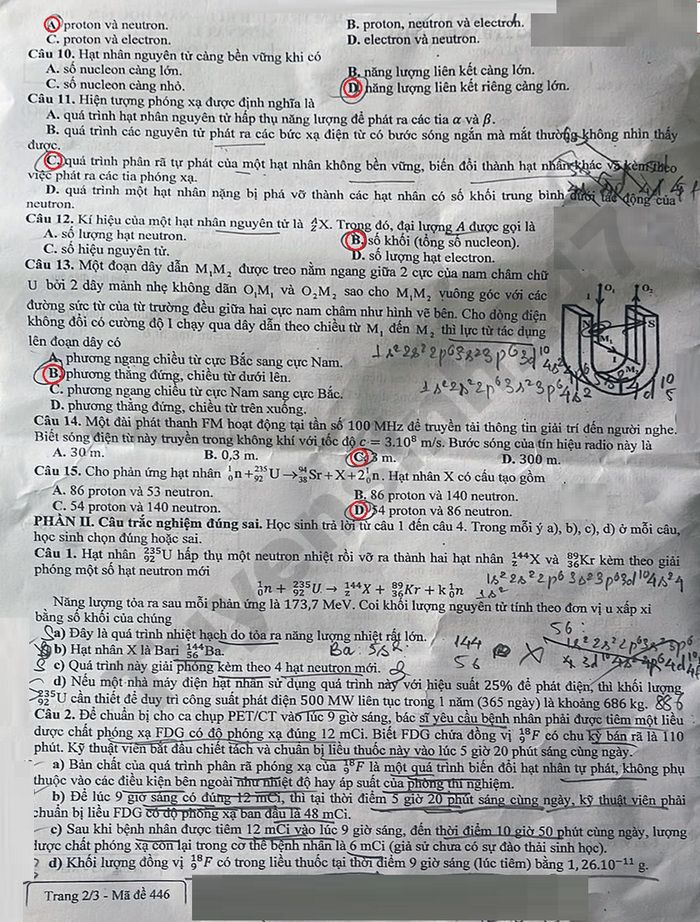 A. proton và neutron. B. proton, neutron và electron.
C. proton và electron. D. electron và neutron.
Câu 10. Hạt nhân nguyên tử càng bền vững khi có
A. số nucleon càng lớn. B. năng lượng liên kết càng lớn.
C. số nucleon càng nhỏ. D. năng lượng liên kết riêng càng lớn.
Câu 11. Hiện tượng phóng xạ được định nghĩa là
A. quá trình hạt nhân nguyên tử hấp thụ năng lượng để phát ra các tia α và β.
B. quá trình các nguyên tử phát ra các bức xạ điện từ có bước sóng ngắn mà mắt thường không nhìn thấy
được.
C. quá trình phân rã tự phát của một hạt nhân không bền vững, biến đổi thành hạt nhân khác và kèm theo
việc phát ra các tia phóng xạ.
D. quá trình một hạt nhân nặng bị phá vỡ thành các hạt nhân có số khối trung bình dưới tác động của
neutron.
Câu 12. Kí hiệu của một hạt nhân nguyên tử là ᴬ_Z X. Trong đó, đại lượng A được gọi là
A. số lượng hạt neutron. B. số khối (tổng số nucleon).
C. số hiệu nguyên tử. D. số lượng hạt electron.
Câu 13. Một đoạn dây dẫn M₁M₂ được treo nằm ngang giữa 2 cực của nam châm chữ
U bởi 2 dây mảnh nhẹ không dãn O₁M₁ và O₂M₂ sao cho M₁M₂ vuông góc với các
đường sức từ của từ trường đều giữa hai cực nam châm như hình vẽ bên. Cho dòng điện
không đổi có cường độ I chạy qua dây dẫn theo chiều từ M₁ đến M₂ thì lực từ tác dụng
lên đoạn dây có
O₁ O₂
I
N S
M₁
M₂
A. phương ngang chiều từ cực Bắc sang cực Nam. 1s²2s²2p⁶3s²3p⁶3d¹⁰
B. phương thẳng đứng, chiều từ dưới lên.
C. phương ngang chiều từ cực Nam sang cực Bắc. 1s²2s²2p⁶3s²3p⁶4s²
D. phương thẳng đứng, chiều từ trên xuống.
Câu 14. Một đài phát thanh FM hoạt động tại tần số 100 MHz để truyền tải thông tin giải trí đến người nghe.
Biết sóng điện từ này truyền trong không khí với tốc độ c = 3.10⁸ m/s. Bước sóng của tín hiệu radio này là
A. 30 m. B. 0,3 m. C. 3 m. D. 300 m.
Câu 15. Cho phản ứng hạt nhân ¹₀n + ²³⁵₉₂U → ⁹⁴₃₈Sr + X + 2¹₀n. Hạt nhân X có cấu tạo gồm
A. 86 proton và 53 neutron. B. 86 proton và 140 neutron.
C. 54 proton và 140 neutron. D. 54 proton và 86 neutron.
PHẦN II. Câu trắc nghiệm đúng sai. Học sinh trả lời từ câu 1 đến câu 4. Trong mỗi ý a), b), c), d) ở mỗi câu,
học sinh chọn đúng hoặc sai.
Câu 1. Hạt nhân ²³⁵₉₂U hấp thụ một neutron nhiệt rồi vỡ ra thành hai hạt nhân ¹⁴⁴_Z X và ⁸⁹₃₆Kr kèm theo giải
phóng một số hạt neutron mới
¹₀n + ²³⁵₉₂U → ¹⁴⁴_Z X + ⁸⁹₃₆Kr + k¹₀n 1s²2s²2p⁶3s²3p⁶3d¹⁰4s²4
Năng lượng tỏa ra sau mỗi phản ứng là 173,7 MeV. Coi khối lượng nguyên tử tính theo đơn vị u xấp xỉ
bằng số khối của chúng
a) Đây là quá trình nhiệt hạch do tỏa ra năng lượng nhiệt rất lớn. 56:
b) Hạt nhân X là Bari ¹⁴⁴₅₆Ba. 144 1s²2s²2p⁶3s²3p⁶
c) Quá trình này giải phóng kèm theo 4 hạt neutron mới. 56 X
d) Nếu một nhà máy điện hạt nhân sử dụng quá trình này với hiệu suất 25% để phát điện, thì khối lượng
²³⁵₉₂U cần thiết để duy trì công suất phát điện 500 MW liên tục trong 1 năm (365 ngày) là khoảng 686 kg.
Câu 2. Để chuẩn bị cho ca chụp PET/CT vào lúc 9 giờ sáng, bác sĩ yêu cầu bệnh nhân phải được tiêm một liều
dược chất phóng xạ FDG có độ phóng xạ đúng 12 mCi. Biết FDG chứa đồng vị ¹⁸₉F có chu kỳ bán rã là 110
phút. Kỹ thuật viên bắt đầu chiết tách và chuẩn bị liều thuốc này vào lúc 5 giờ 20 phút sáng cùng ngày.
a) Bản chất của quá trình phân rã phóng xạ của ¹⁸₉F là một quá trình biến đổi hạt nhân tự phát, không phụ
thuộc vào các điều kiện bên ngoài như nhiệt độ hay áp suất của phòng thí nghiệm.
b) Để lúc 9 giờ sáng có đúng 12 mCi, thì tại thời điểm 5 giờ 20 phút sáng cùng ngày, kỹ thuật viên phải
chuẩn bị liều FDG có độ phóng xạ ban đầu là 48 mCi.
c) Sau khi bệnh nhân được tiêm 12 mCi vào lúc 9 giờ sáng, đến thời điểm 10 giờ 50 phút cùng ngày, lượng
dược chất phóng xạ còn lại trong cơ thể bệnh nhân là 6 mCi (giả sử chưa có sự đào thải sinh học).
d) Khối lượng đồng vị ¹⁸₉F có trong liều thuốc tại thời điểm 9 giờ sáng (lúc tiêm) bằng 1,26.10⁻¹¹ g.
Trang 2/3 - Mã đề 446